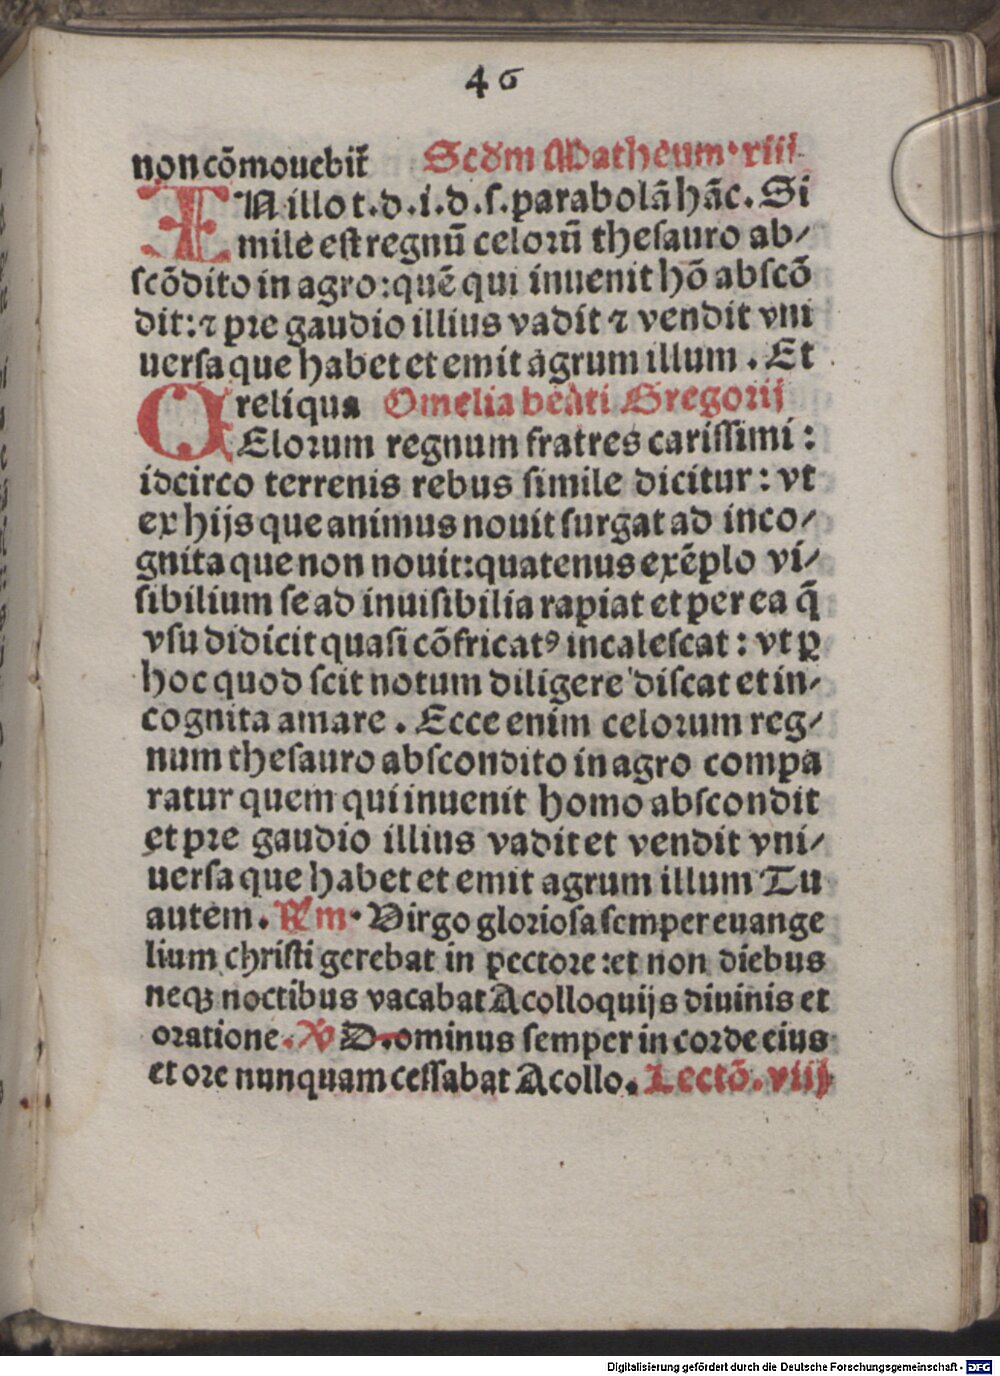 46
non cōmouebit̄ Scd̄m Matheum·xiii
IN illo t.d.i.d.s.parabolā hāc. Si
mile est regnū celoꝛū thesauro ab/
scōdito in agro:quē qui inuenit hō abscō
dit:⁊ pꝛe gaudio illius vadit ⁊ vendit vni
uersa que habet et emit agrum illum . Et
reliqua Omelia beati Gregoꝛij
CEloꝛum regnum fratres carissimi :
idcirco terrenis rebus simile dicitur : vt
ex hijs que animus nouit surgat ad inco/
gnita que non nouit:quatenus exēplo vi/
sibilium se ad inuisibilia rapiat et per ea q̄
vsu didicit quasi cōfricatꝰ incalescat : vt ꝑ
hoc quod scit notum diligere discat et in/
cognita amare . Ecce enim celoꝛum reg/
num thesauro abscondito in agro compa
ratur quem qui inuenit homo abscondit
et pꝛe gaudio illius vadit et vendit vni/
uersa que habet et emit agrum illum Tu
autem . Rm· Virgo glorіosa semper euange
lium christi gerebat in pectoꝛe :et non diebus
neqꝫ noctibus vacabat A colloquijs diuinis et
oꝛatione . ꝟ D.ominus semper in coꝛde eius
et oꝛe nunquam cessabat A collo. Lectō. viij
Digitalisierung gefördert durch die Deutsche Forschungsgemeinschaft - DFG